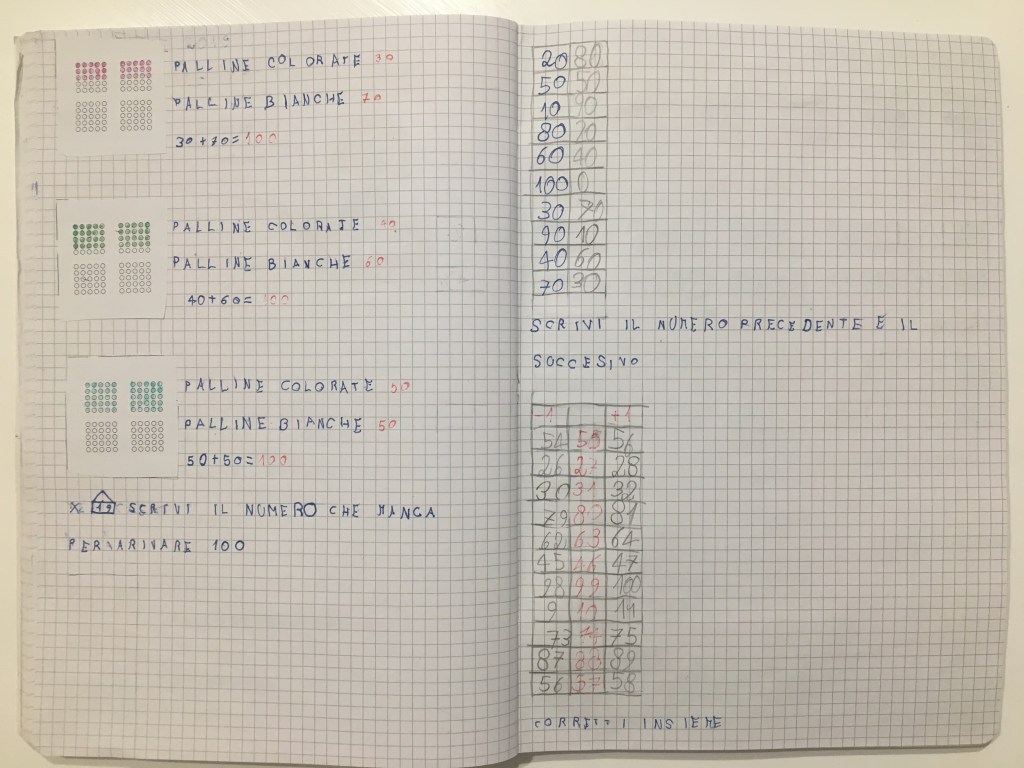 PALLINE COLORATE 30
PALLINE BIANCHE 70
30+70=100
PALLINE COLORATE 40
PALLINE BIANCHE 60
40+60=100
PALLINE COLORATE 50
PALLINE BIANCHE 50
50+50=100
X 19 SCRIVI IL NUMERO CHE MANCA
PER ARIVARE 100
20 80
50 50
10 90
80 20
60 40
100 0
30 70
90 10
40 60
70 30
SCRIVI IL NUMERO PRECEDENTE E IL
SOCCESIVO
-1 +1
54 55 56
26 27 28
30 31 32
79 80 81
62 63 64
45 46 47
98 99 100
9 10 11
73 74 75
87 88 89
56 57 58
CORRETTI INSIEME